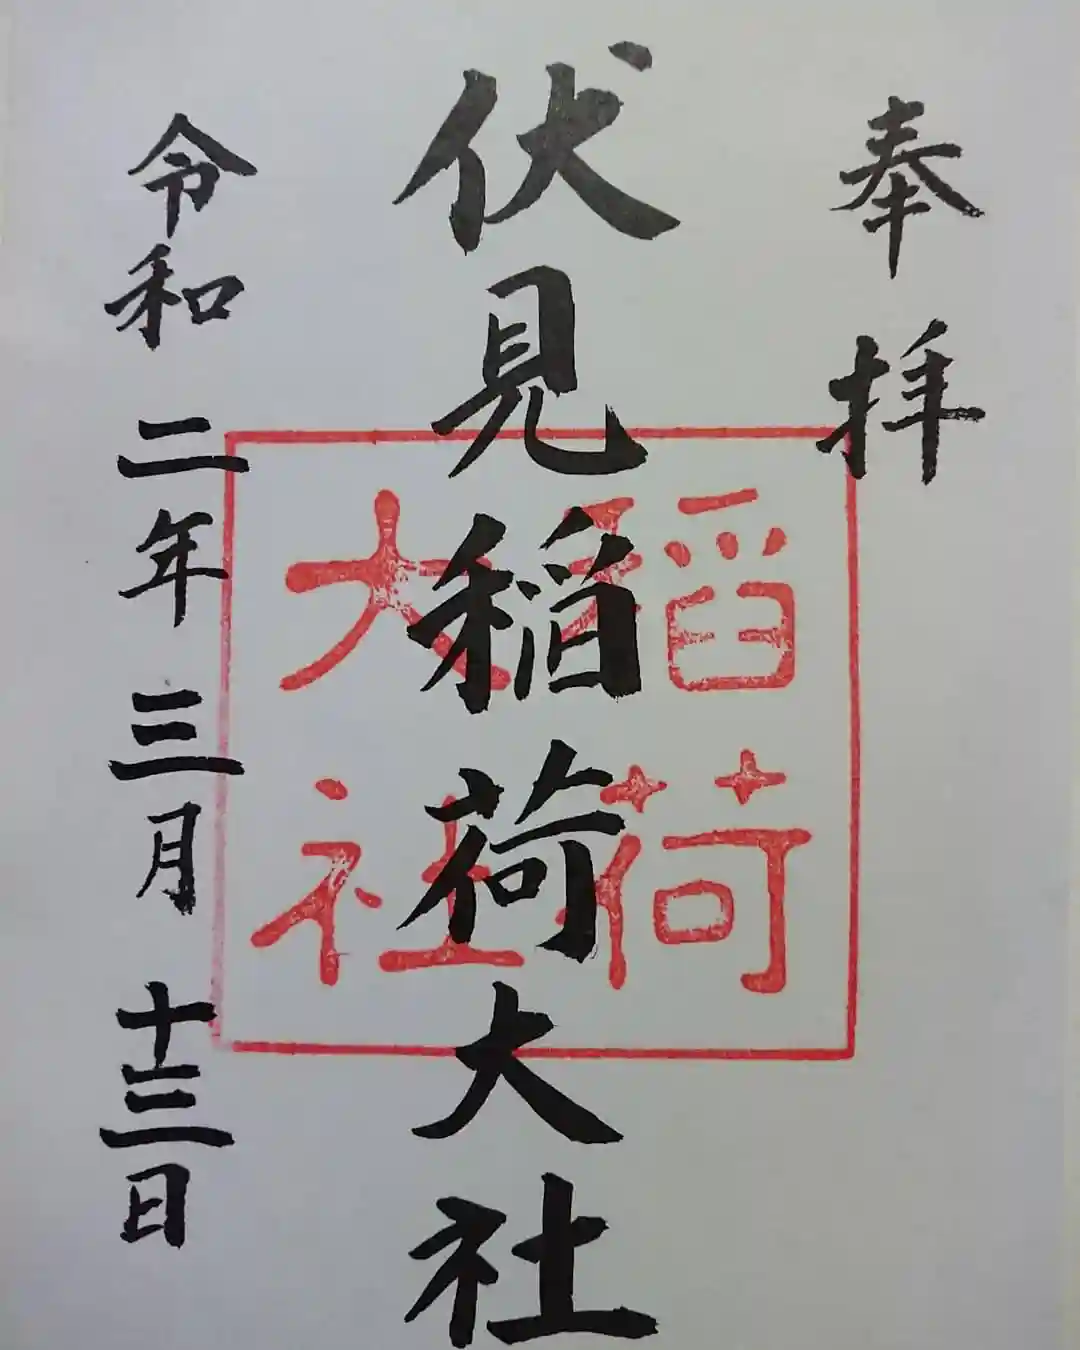 奉拝
伏見稲荷大社
稲荷
大社
令和二年三月十三日